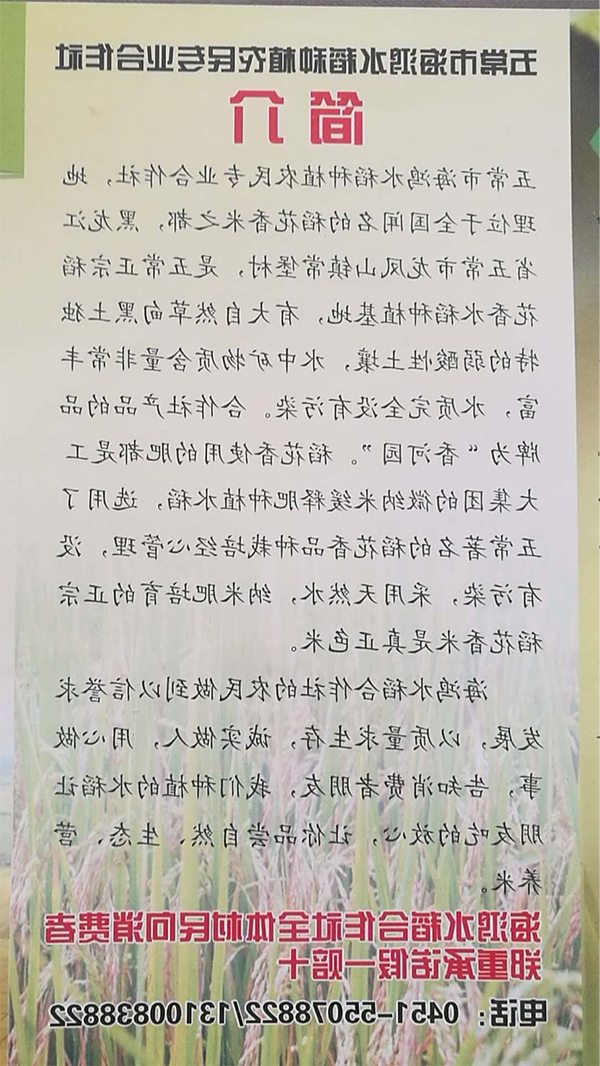 五常市海鸿水稻种植农民专业合作社
简介
五常市海鸿水稻种植农民专业合作社，地
理位于全国闻名的稻花香米之都，黑龙江
省五常市龙凤山镇常堡村，是五常正宗稻
花香水稻种植基地，有大自然草甸黑土独
特的弱酸性土壤，水中矿物质含量非常丰
富，水质完全没有污染。合作社产品的品
牌为“香河园”。稻花香使用的肥都是工
大集团的微纳米缓释肥种植水稻，选用了
五常著名的稻花香品种栽培经心管理，没
有污染，采用天然水，纳米肥培育的正宗
稻花香米是真正色米。
海鸿水稻合作社的农民做到以信誉求
发展，以质量求生存，诚实做人，用心做
事，告知消费者朋友，我们种植的水稻让
朋友吃的放心，让你品尝自然、生态、营
养米。
海鸿水稻合作社全体村民向消费者
郑重承诺假一赔十
电话：0451-55078822/13100838822